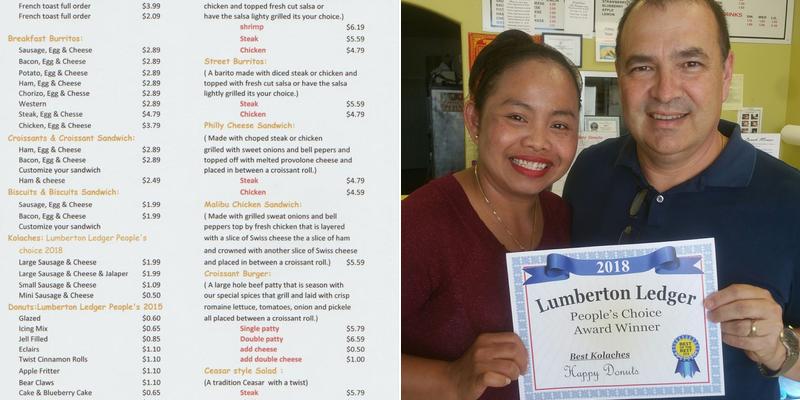 French toast full order $3.99
French toast full order $2.09
Breakfast Burritos:
Sausage, Egg & Cheese $2.89
Bacon, Egg & Cheese $2.89
Potato, Egg & Cheese $2.89
Ham, Egg & Cheese $2.89
Chorizo, Egg & Chesse $2.89
Western $2.89
Steak, Egg & Cheese $4.79
Chicken, Egg & Cheese $3.79
Croissants & Croissant Sandwich:
Ham, Egg & Cheese $2.89
Bacon, Egg & Cheese $2.89
Customize your sandwich
Ham & cheese $2.49
Biscuits & Biscuits Sandwich:
Sausage, Egg & Cheese $1.99
Bacon, Egg & Cheese $1.99
Customize your sandwich
Kolaches: Lumberton Ledger People's
choice 2018
Large Sausage & Cheese $1.99
Large Sausage & Cheese & Jalaper $1.99
Small Sausage & Cheese $1.09
Mini Sausage & Cheese $0.50
Donuts:Lumberton Ledger People's 2015
Glazed $0.60
Icing Mix $0.65
Jell Filled $0.85
Eclairs $1.10
Twist Cinnamon Rolls $1.10
Apple Fritter $1.10
Bear Claws $1.10
Cake & Blueberry Cake $0.65
chicken and topped fresh cut salsa or
have the salsa lighty grilled its your choice.)
shrimp $6.19
Steak $5.59
Chicken $4.79
Street Burritos:
( A barito made with diced steak or chicken and
topped with fresh cut salsa or have the salsa
lightly grilled its your choice.)
Steak $5.59
Chicken $4.79
Philly Cheese Sandwich:
( Made with choped steak or chicken
grilled with sweet onions and bell pepers and
topped off with melted provolone cheese and
placed in between a croissant roll.)
Steak $4.79
Chicken $4.59
Malibu Chicken Sandwich:
( Made with grilled sweat onions and bell
peppers top by fresh chicken that is layered
with a slice of Swiss cheese the a slice of ham
and crowned with another slice of Swiss cheese
and placed in between a croissant roll.) $5.59
Croissant Burger:
( A large hole beef patty that is season with
our special spices that grill and laid with crisp
romaine lettuce, tomatoes, onion and pickele
all placed between a croissant roll.)
Single patty $5.79
Double patty $6.59
add cheese $0.50
add double cheese $1.00
Ceasar style Salad :
(A tradition Ceasar with a twist)
Steak $5.79
2018
Lumberton Ledger
People's Choice
Award Winner
Best Kolaches
Happy Donuts